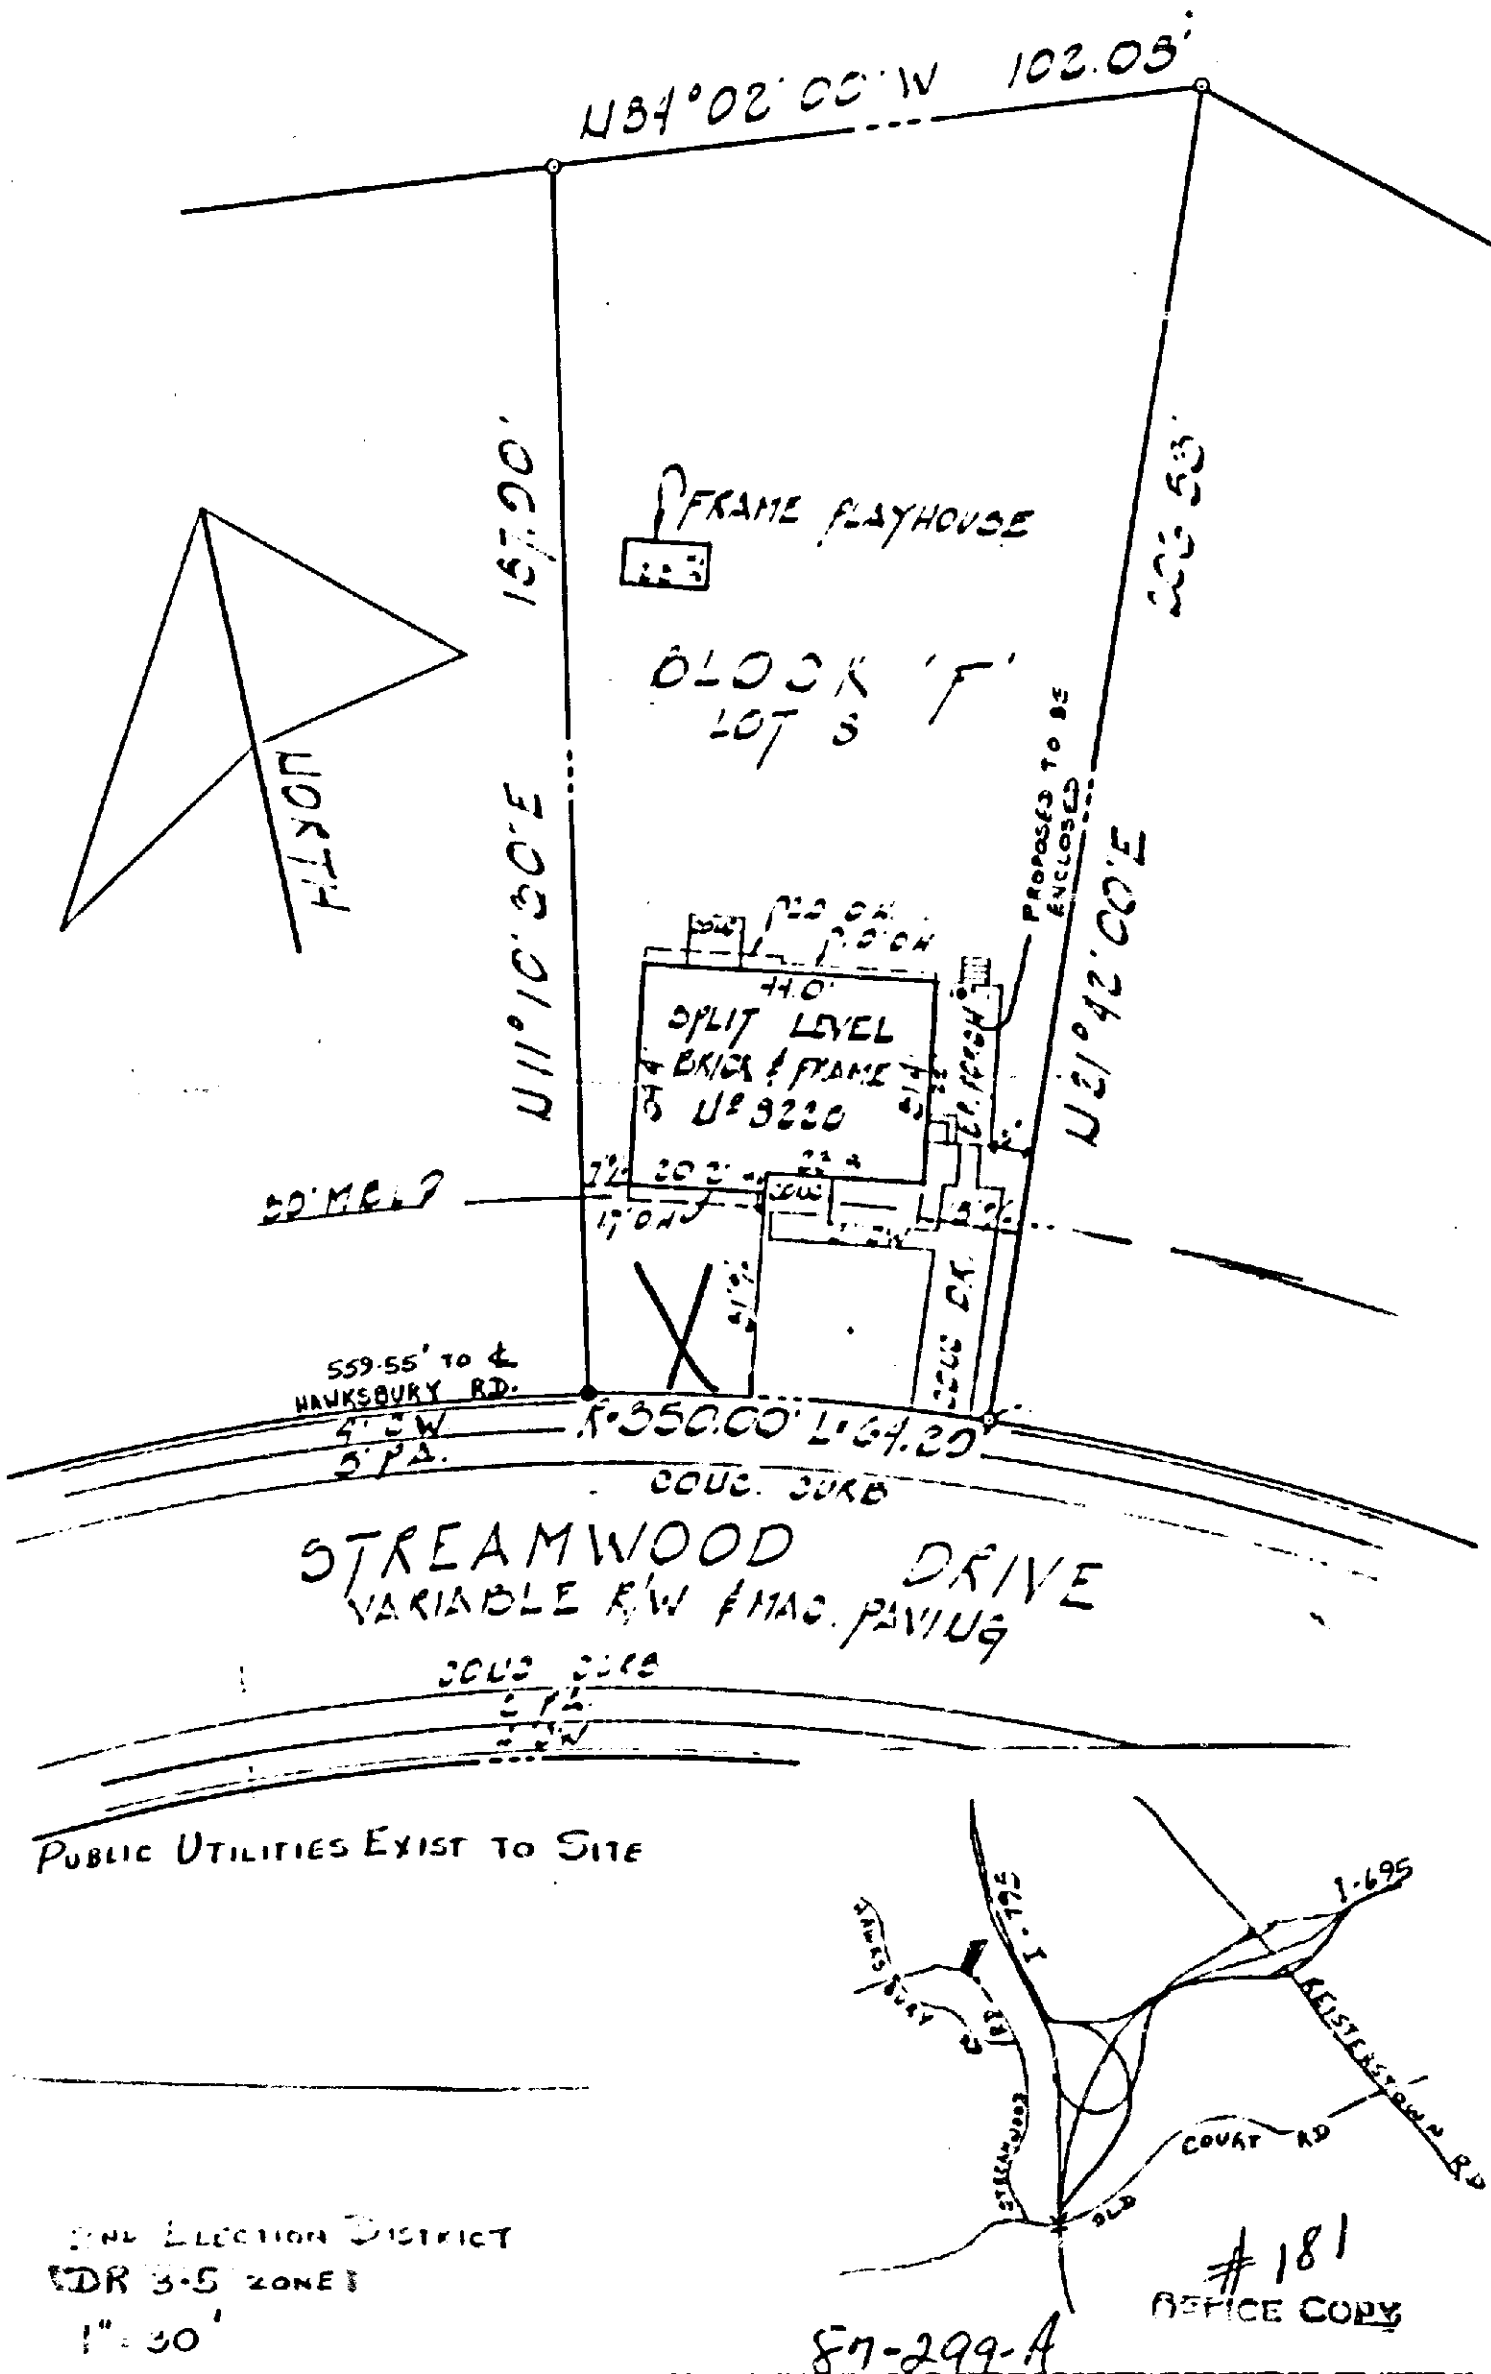 N84°02'00"W 102.03'
187.90'
N11°10'30"E
FRAME PLAYHOUSE
BLOCK 'F'
LOT 8
NORTH
PROPOSED TO BE
ENCLOSED
N21°42'00"E
44.0'
SPLIT LEVEL
BRICK & FRAME
Nº 3220
EP. PORCH
20.2'
1.7' OH
CONC
CONC DR.
559.55' TO ℄
HAWKSBURY RD.
4' SW
5' P.A.
R=350.00' L=64.29
CONC. CURB
STREAMWOOD DRIVE
VARIABLE R/W & MAC. PAVING
CONC CURB
PUBLIC UTILITIES EXIST TO SITE
I-795
I-695
HAWKSBURY
REISTERSTOWN RD
STREAMWOOD
DR
OLD COURT RD
2ND ELECTION DISTRICT
DR 3.5 ZONE
1" = 30'
# 181
OFFICE COPY
87-299-A